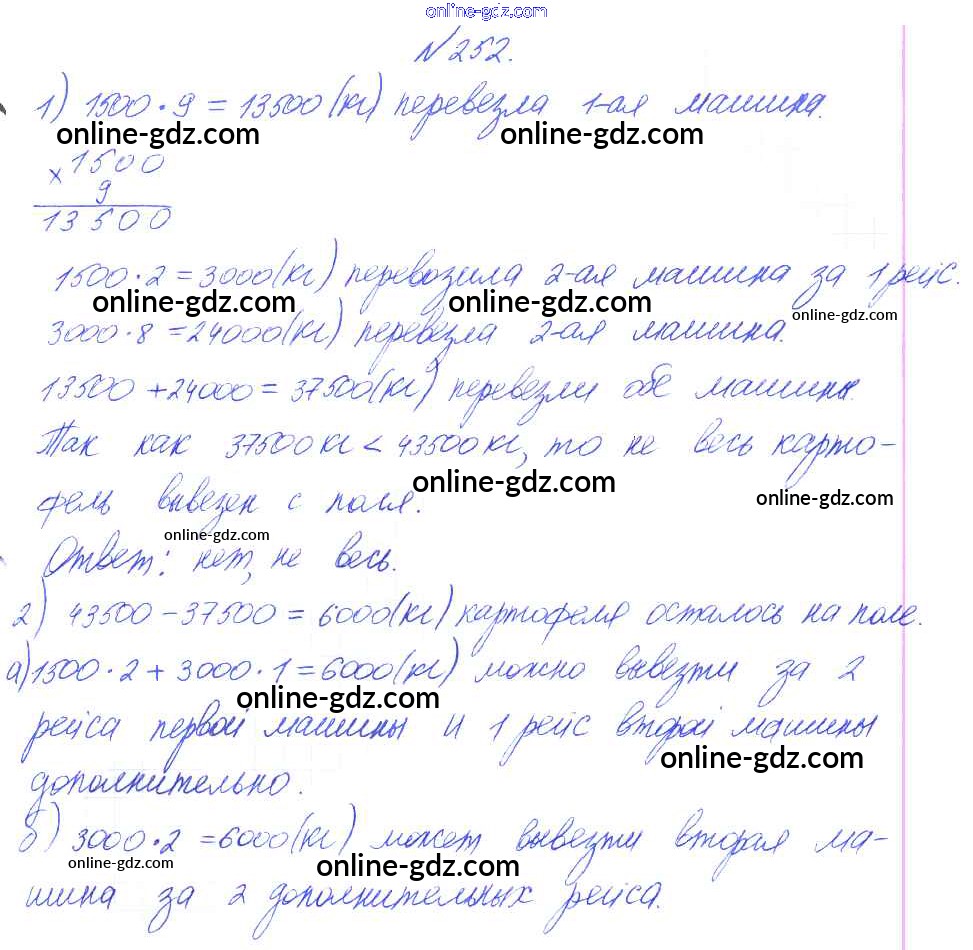 online-gdz.com
№252.
1) 1500·9 = 13500(кг) перевезла 1-ая машина.
online-gdz.com online-gdz.com
×1500
9
13500
1500·2 = 3000(кг) перевозила 2-ая машина за 1 рейс.
online-gdz.com online-gdz.com online-gdz.com
3000·8 = 24000(кг) перевезла 2-ая машина.
13500 + 24000 = 37500(кг) перевезли обе машины.
Так как 37500 кг < 43500 кг, то не весь карто-
online-gdz.com online-gdz.com
фель вывезен с поля.
online-gdz.com
Ответ: нет, не весь.
2) 43500 – 37500 = 6000(кг) картофеля осталось на поле.
а) 1500·2 + 3000·1 = 6000(кг) можно вывезти за 2
online-gdz.com
рейса первой машины и 1 рейс второй машины
online-gdz.com
дополнительно.
б) 3000·2 = 6000(кг) может вывезти вторая ма-
online-gdz.com online-gdz.com
шина за 2 дополнительных рейса.